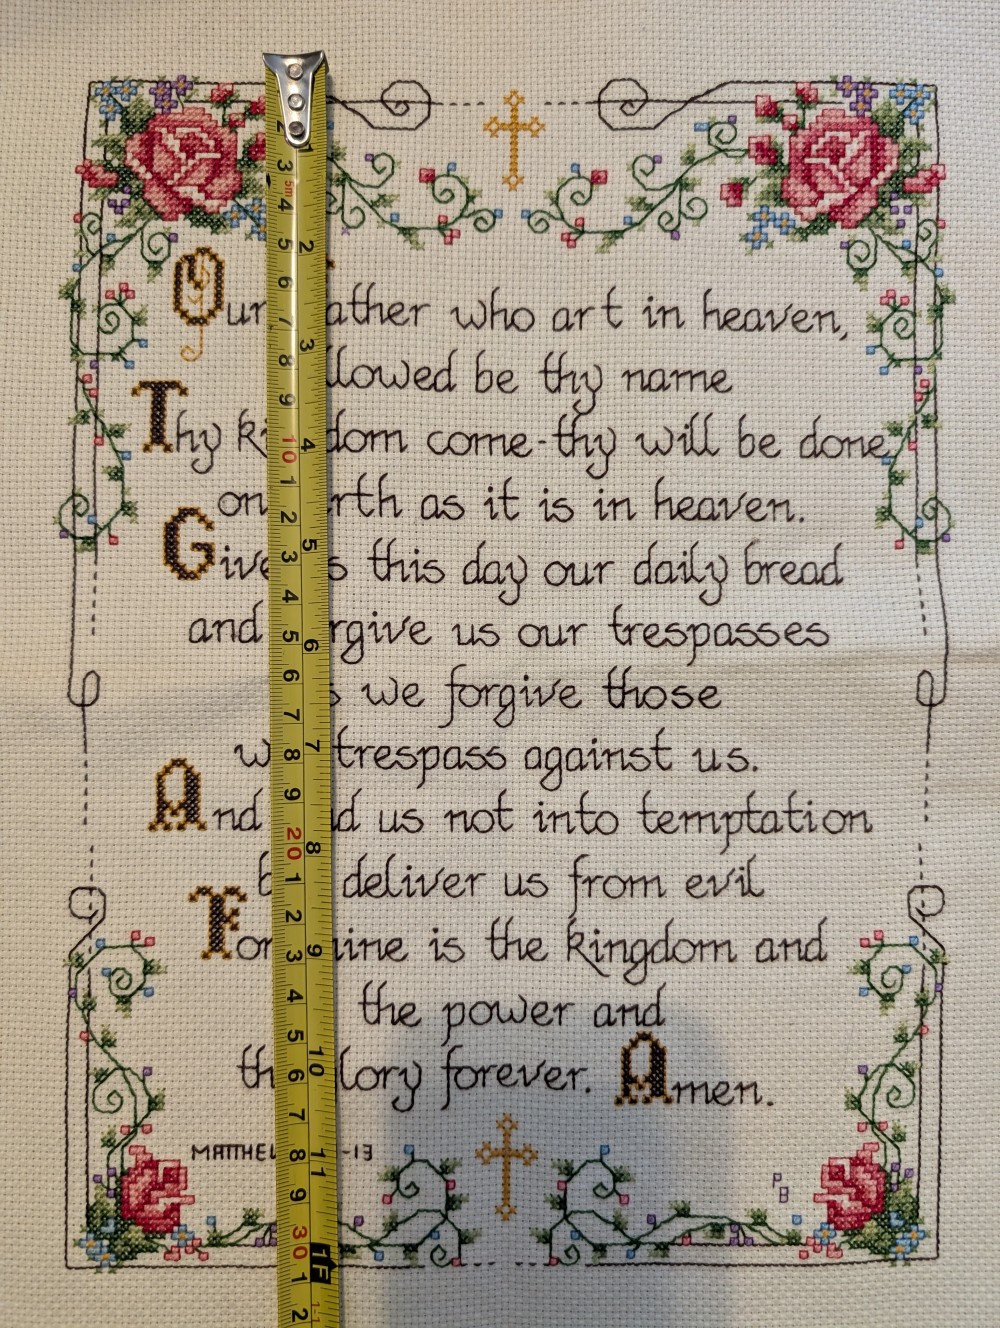 Our who art in heaven,
be thy name
Thy come-thy will be done
on as it is in heaven.
this day our daily bread
and us our trespasses
we forgive those
trespass against us.
And us not into temptation
deliver us from evil
is the kingdom and
the power and
forever. Amen.
-13
2 3 5m 4 5 6 7 8 9 10 1 2 3 4 5 6 7 8 9 20 1 2 3 4 5 6 7 8 9 30 1 2
1 2 3 4 5 6 7 8 9 10 11 1F